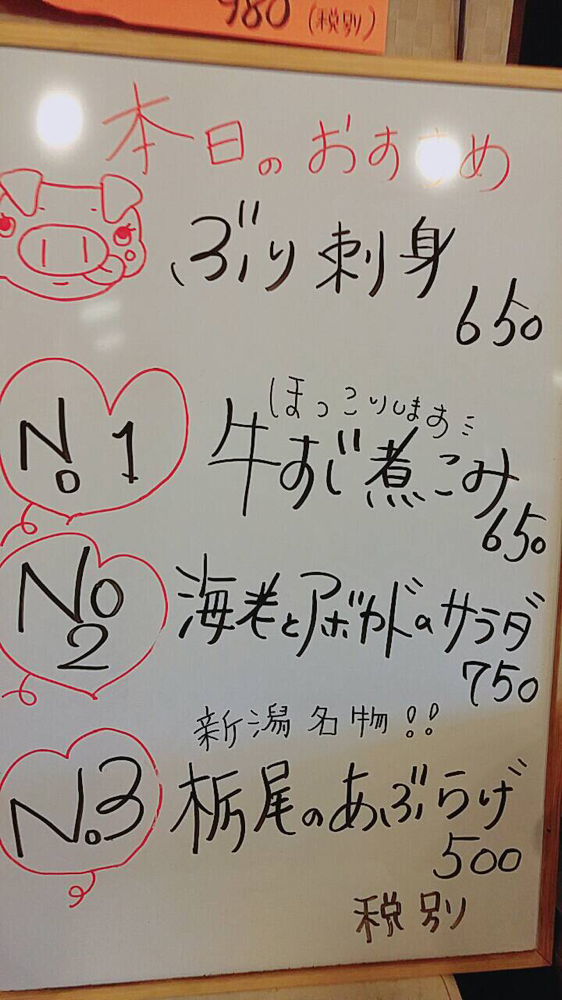 980 (税別)
本日のおすすめ
ぶり刺身
650
No 1
ほっこりします
牛すじ煮こみ
650
No 2
海老とアボカドのサラダ
750
新潟名物!!
No.3
栃尾のあぶらげ
500
税別